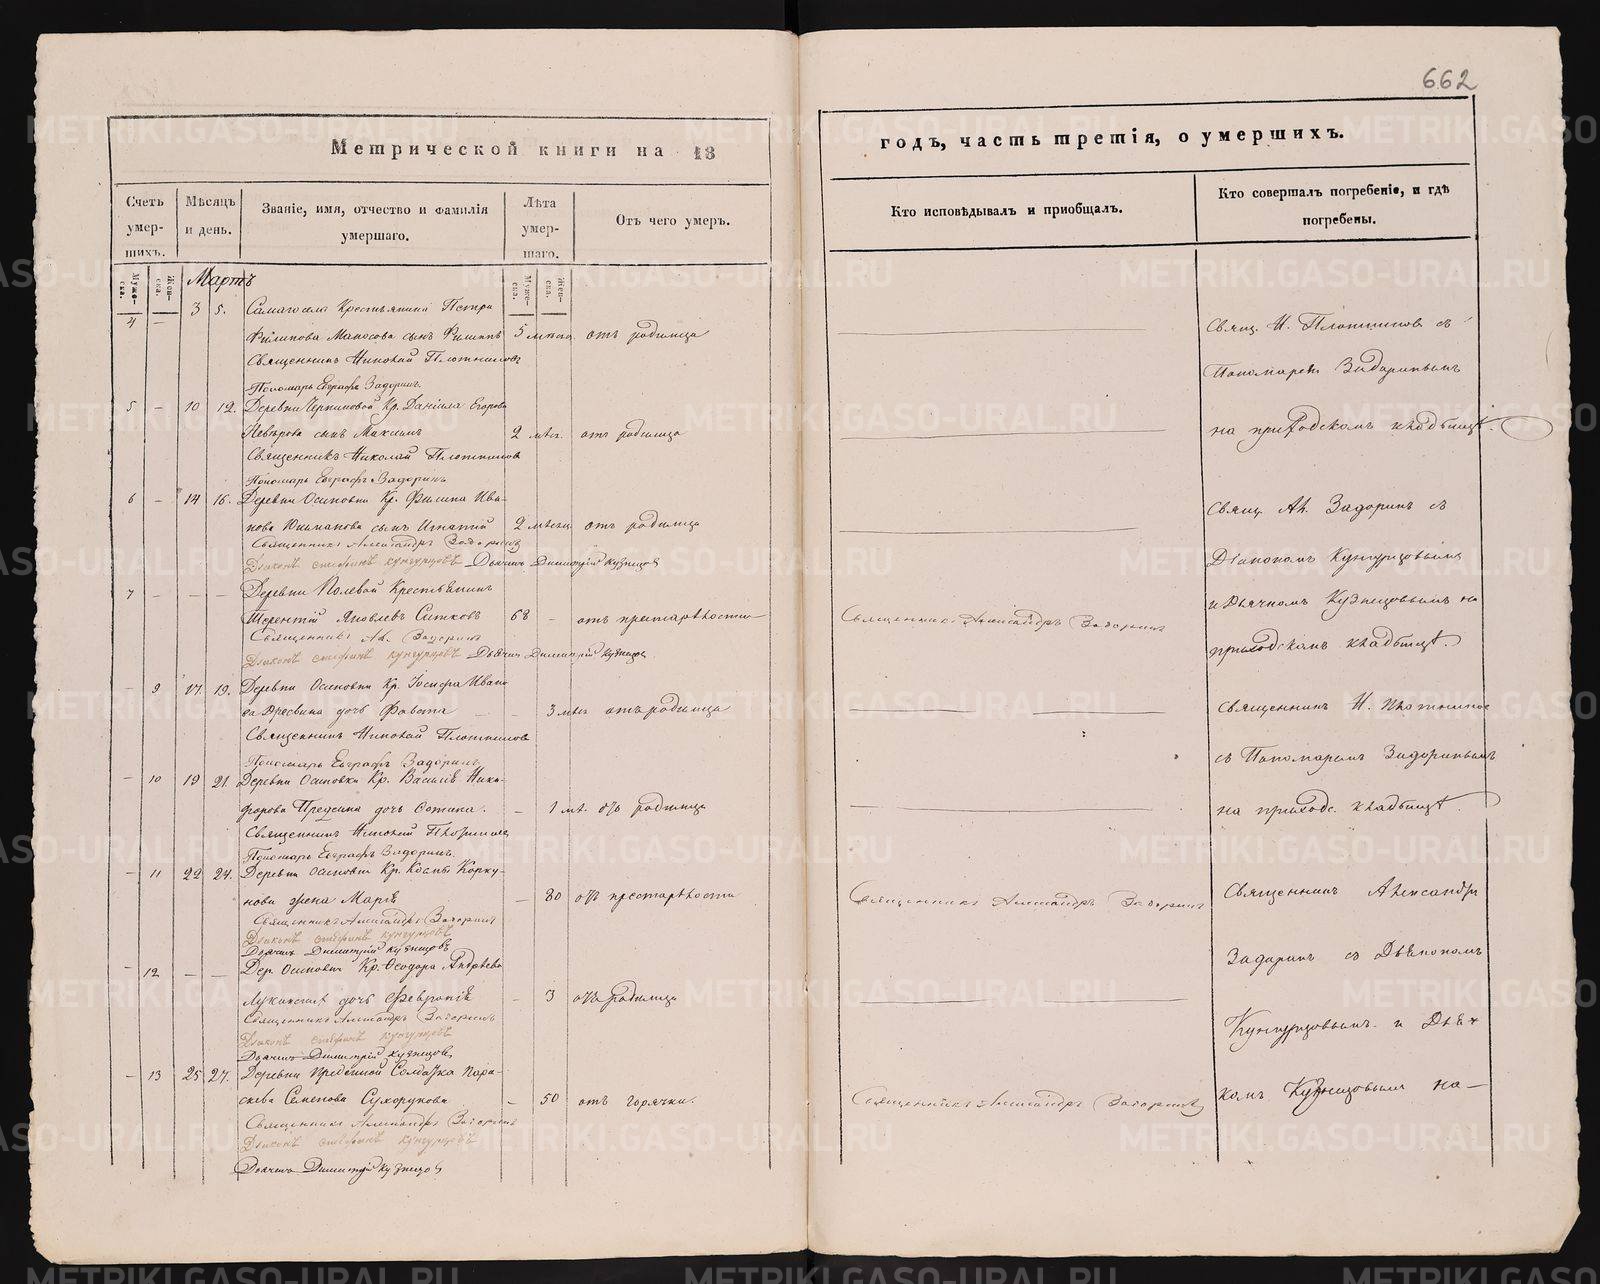 662
Метрической книги на 18
годъ, часть третія, о умершихъ.
Счетъ умер-шихъ.
Мѣсяцъ и день.
Званіе, имя, отчество и фамилія умершаго.
Лѣта умер-шаго.
Отъ чего умеръ.
Кто исповѣдывалъ и пріобщалъ.
Кто совершалъ погребеніе, и гдѣ погребены.
Муже-ска.
Жен-ска.
Муже-ска.
Жен-ска.
Мартъ
4 — 3 5. Крестьянина Петра
Филипова сынъ Филипъ 5 отъ родимца
Священникъ Николай Плотниковъ
Пономарь Евграфъ Задоринъ.
5 — 10 12. Деревни Кр. Даніила Егорова
сынъ Максимъ 2 мѣс. отъ родимца
Священникъ Николай Плотниковъ
Пономарь Евграфъ Задоринъ
6 — 14 16. Деревни Осиновки Кр. Филипа Ива-
нова сынъ Игнатій 2 отъ родимца
Священникъ Александръ Задоринъ
Діаконъ Стефанъ Кунгурцовъ Дьячокъ Димитрій Кузнецовъ
7 — — — Деревни Полевой Крестьянинъ
Терентій Яковлевъ Ситковъ 68 — отъ престарѣлости
Священникъ Ал. Задоринъ
Діаконъ Стефанъ Кунгурцовъ Дьячокъ Димитрій Кузнецовъ
Священникъ Александръ Задоринъ
— 9 17. 19. Деревни Осиновки Кр. Іосифа Ивано
ва дочь — — 3 мѣс отъ родимца
Священникъ Николай Плотниковъ
Пономарь Евграфъ Задоринъ
— 10 19 21. Деревни Осиновки Кр. Василія Ники-
форова дочь — 1 мѣ. отъ родимца
Священникъ Николай Плотниковъ
Пономарь Евграфъ Задоринъ.
— 11 22 24. Деревни Осиновки Кр. Космы Корку-
нова жена Марія — 80 отъ престарѣлости
Священникъ Александръ Задоринъ
Діаконъ Стефанъ Кунгурцовъ
Дьячокъ Димитрій Кузнецовъ
Священникъ Александръ Задоринъ
— 12 — — Дер. Осиновки Кр. Ѳеодора Андрѣева
дочь Февронія — 3 отъ родимца
Священникъ Александръ Задоринъ
Діаконъ Стефанъ Кунгурцовъ
Дьячокъ Димитрій Кузнецовъ
— 13 25 27. Деревни Солдатка Пара-
скева Семенова Сухорукова — 50 отъ горячки.
Священникъ Александръ Задоринъ
Діаконъ Стефанъ Кунгурцовъ
Дьячокъ Димитрій Кузнецовъ
Священникъ Александръ Задоринъ
Свящ. Н. Плотниковъ съ
Пономаремъ Задоринымъ
на приходскомъ кладбищѣ.
Свящ. Ал. Задоринъ съ
Діакономъ Кунгурцовымъ
и Дьячкомъ Кузнецовымъ на
приходскомъ кладбищѣ.
Священникъ Н. Плотниковъ
съ Пономаремъ Задоринымъ
на приходс. кладбищѣ.
Священникъ Александръ
Задоринъ съ Діакономъ
Кунгурцовымъ и Дьяч
комъ Кузнецовымъ на —
METRIKI.GASO-URAL.RU